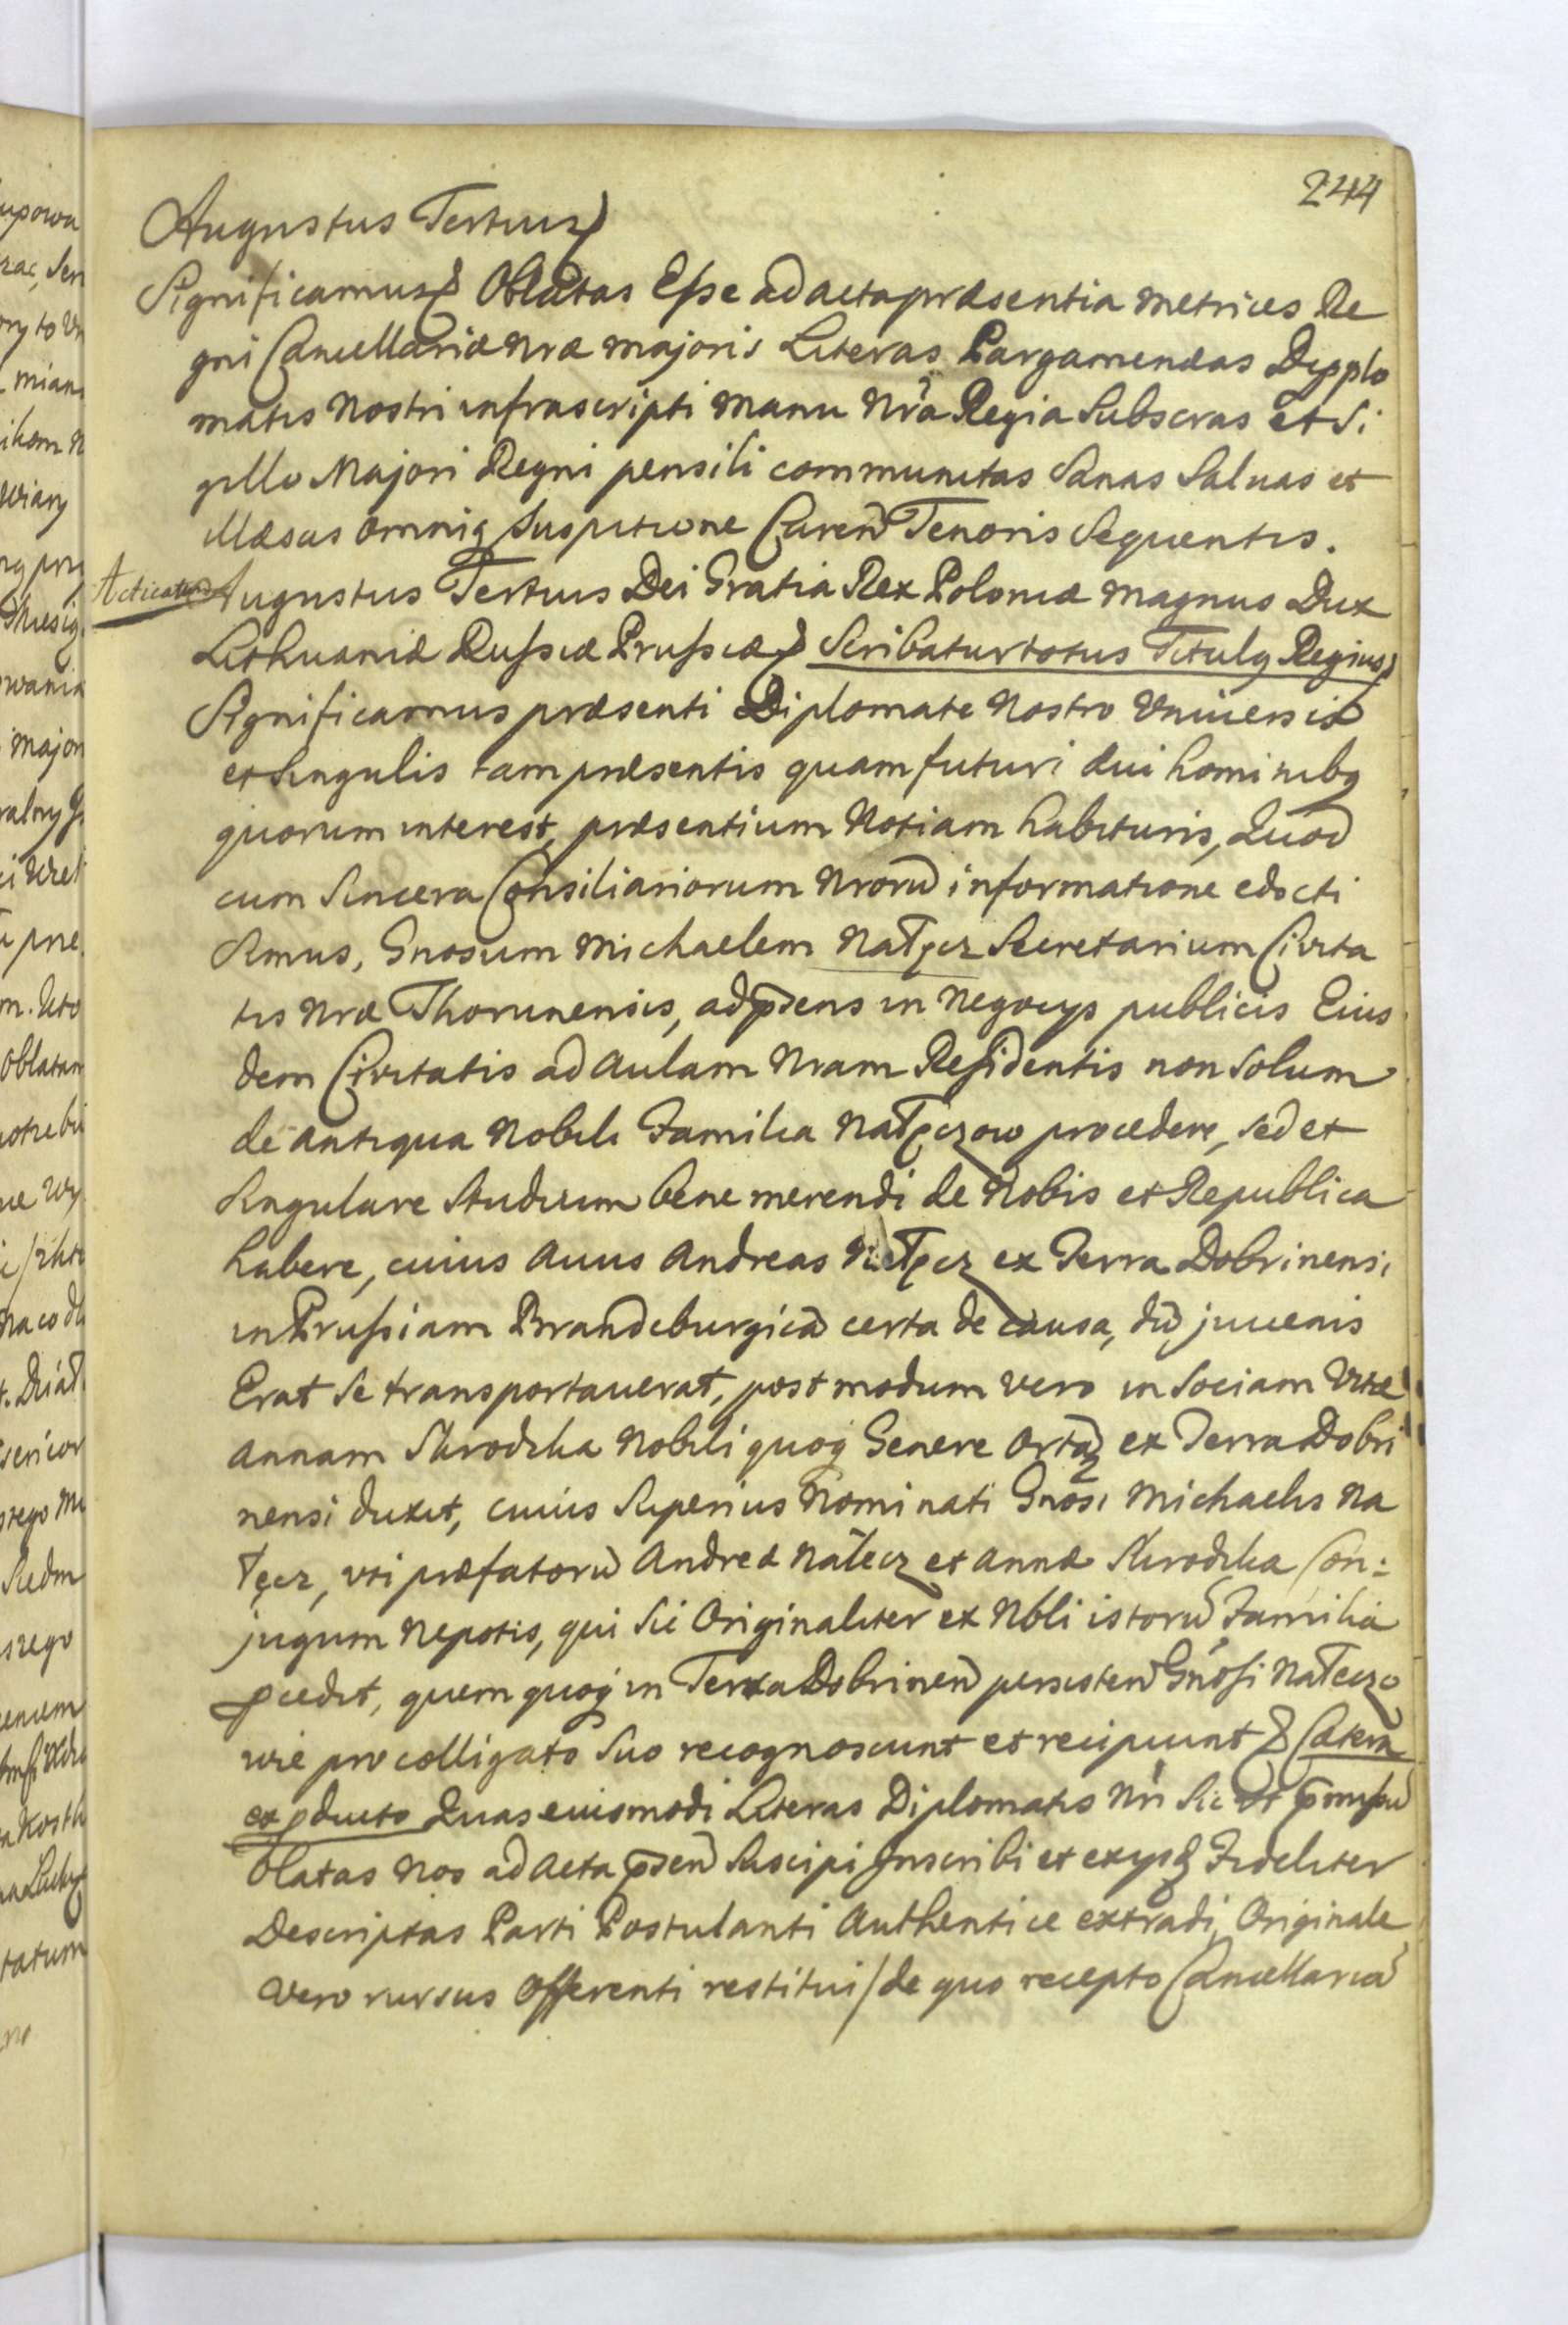 244
Augustus Tertius
Significamus Oblatas Esse ad acta præsentia metrices Re
gni Cancellariæ nræ majoris Literas Pargameneas Dypplo
matis Nostri infrascripti manu Nrâ Regia Subscras et Si
gillo Majori Regni pensili communitas Sanas Saluas et
illæsas omniq Suspitione Caren Tenoris Sequentis.
Augustus Tertius Dei Gratia Rex Poloniæ Magnus Dux
Lithuaniæ Russiæ Prussiæ Scribatur totus Titulq Regius
Significamus præsenti Diplomate Nostro Vniuersis
et Singulis tam præsentis quam futuri æui hominibq
quorum interest, præsentium Notiam habituris, Quod
cum Sincera Consiliariorum Nrorũ informatione edocti
Simus, Gnosum Michaelem Nałęcz Secretarium Ciuita
tis Nræ Thorunensis, ad pñens in Negocys publicis Eius
dem Ciuitatis ad Aulam Nram Residentis non Solum
de Antiqua Nobili Familia Nałęczow procedere, sed et
Singulare Studium bene merendi de Nobis et Republica
habere, cuius Auus Andreas Nałęcz ex Terra Dobrinensi
in Prussiam Brandeburgicã certa de causa, dũ juuenis
Erat Se transportauerat, post modum vero in Sociam Vitæ
Annam Skrodzka Nobili quoq Genere Ortã ex Terra Dobri
nensi duxit, cuius Superius Nominati Gnosi Michaelis Na
łęcz, vti præfatorũ Andreæ Nałecz et Annæ Skrodzka Con:
jugum Nepotis, qui Sic Originaliter ex Nbli istorũ Familia
pcedit, quem quoq in Terra Dobrinen persisten Gnosi Nałeczo
wie pro colligato Suo recognoscunt et recipiunt Cætera
ex pducto Quas eiusmodi Literas Diplomatis Nri Sic ut
Oblatas Nos ad Acta pñen Suscipi Inscribi et Fideliter
Descriptas Parti Postulanti Authentice extradi, Originale
vero rursus Offerenti restitui / de quo recepto Cancellariã